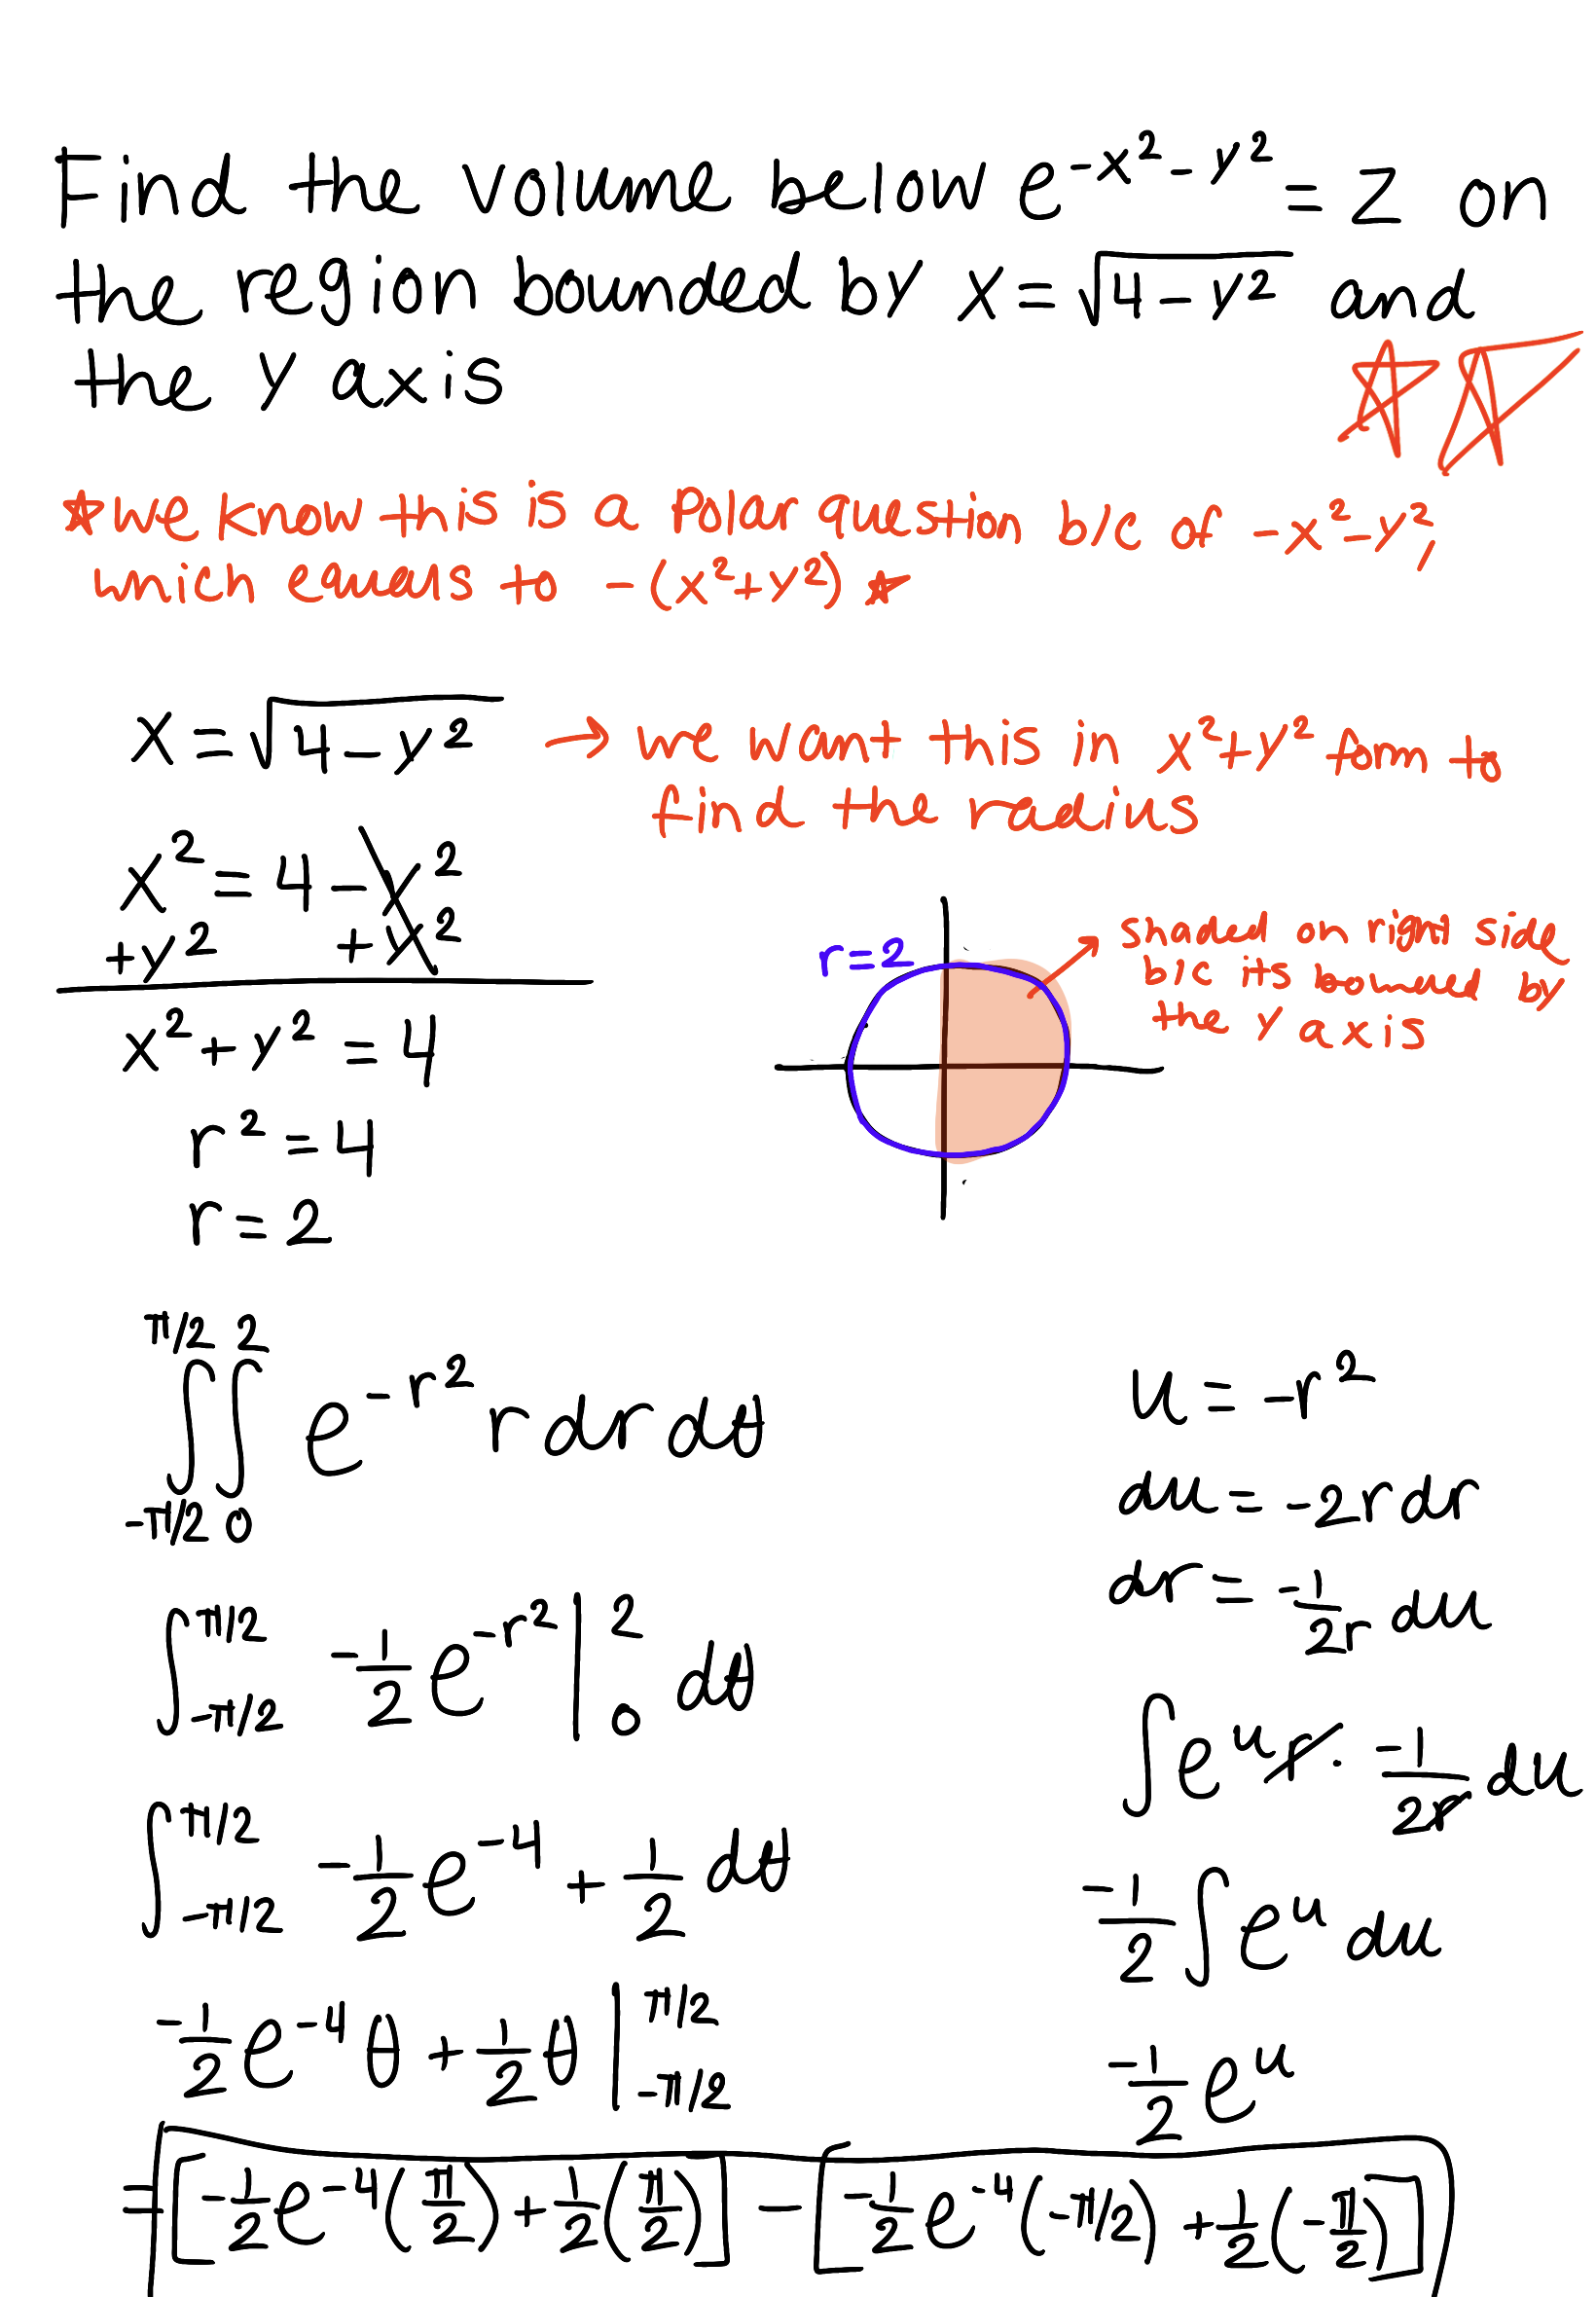 Find the volume below e^{-x²-y²} = z on
the region bounded by x = √(4-y²) and
the y axis
☆ we know this is a Polar question b/c of -x²-y²,
which equals to -(x²+y²) ☆
x = √(4-y²) → we want this in x²+y² form to
find the radius
x² = 4 - y²
+y² +y²
x² + y² = 4
r² = 4
r = 2
r=2
shaded on right side
b/c its bounded by
the y axis
∫_{-π/2}^{π/2} ∫_0^2 e^{-r²} r dr dθ
∫_{-π/2}^{π/2} -1/2 e^{-r²} |_0^2 dθ
∫_{-π/2}^{π/2} -1/2 e^{-4} + 1/2 dθ
-1/2 e^{-4} θ + 1/2 θ |_{-π/2}^{π/2}
u = -r²
du = -2r dr
dr = -1/2r du
∫ e^u r · -1/2r du
-1/2 ∫ e^u du
-1/2 e^u
= [-1/2 e^{-4} (π/2) + 1/2 (π/2)] - [-1/2 e^{-4} (-π/2) + 1/2 (-π/2)]